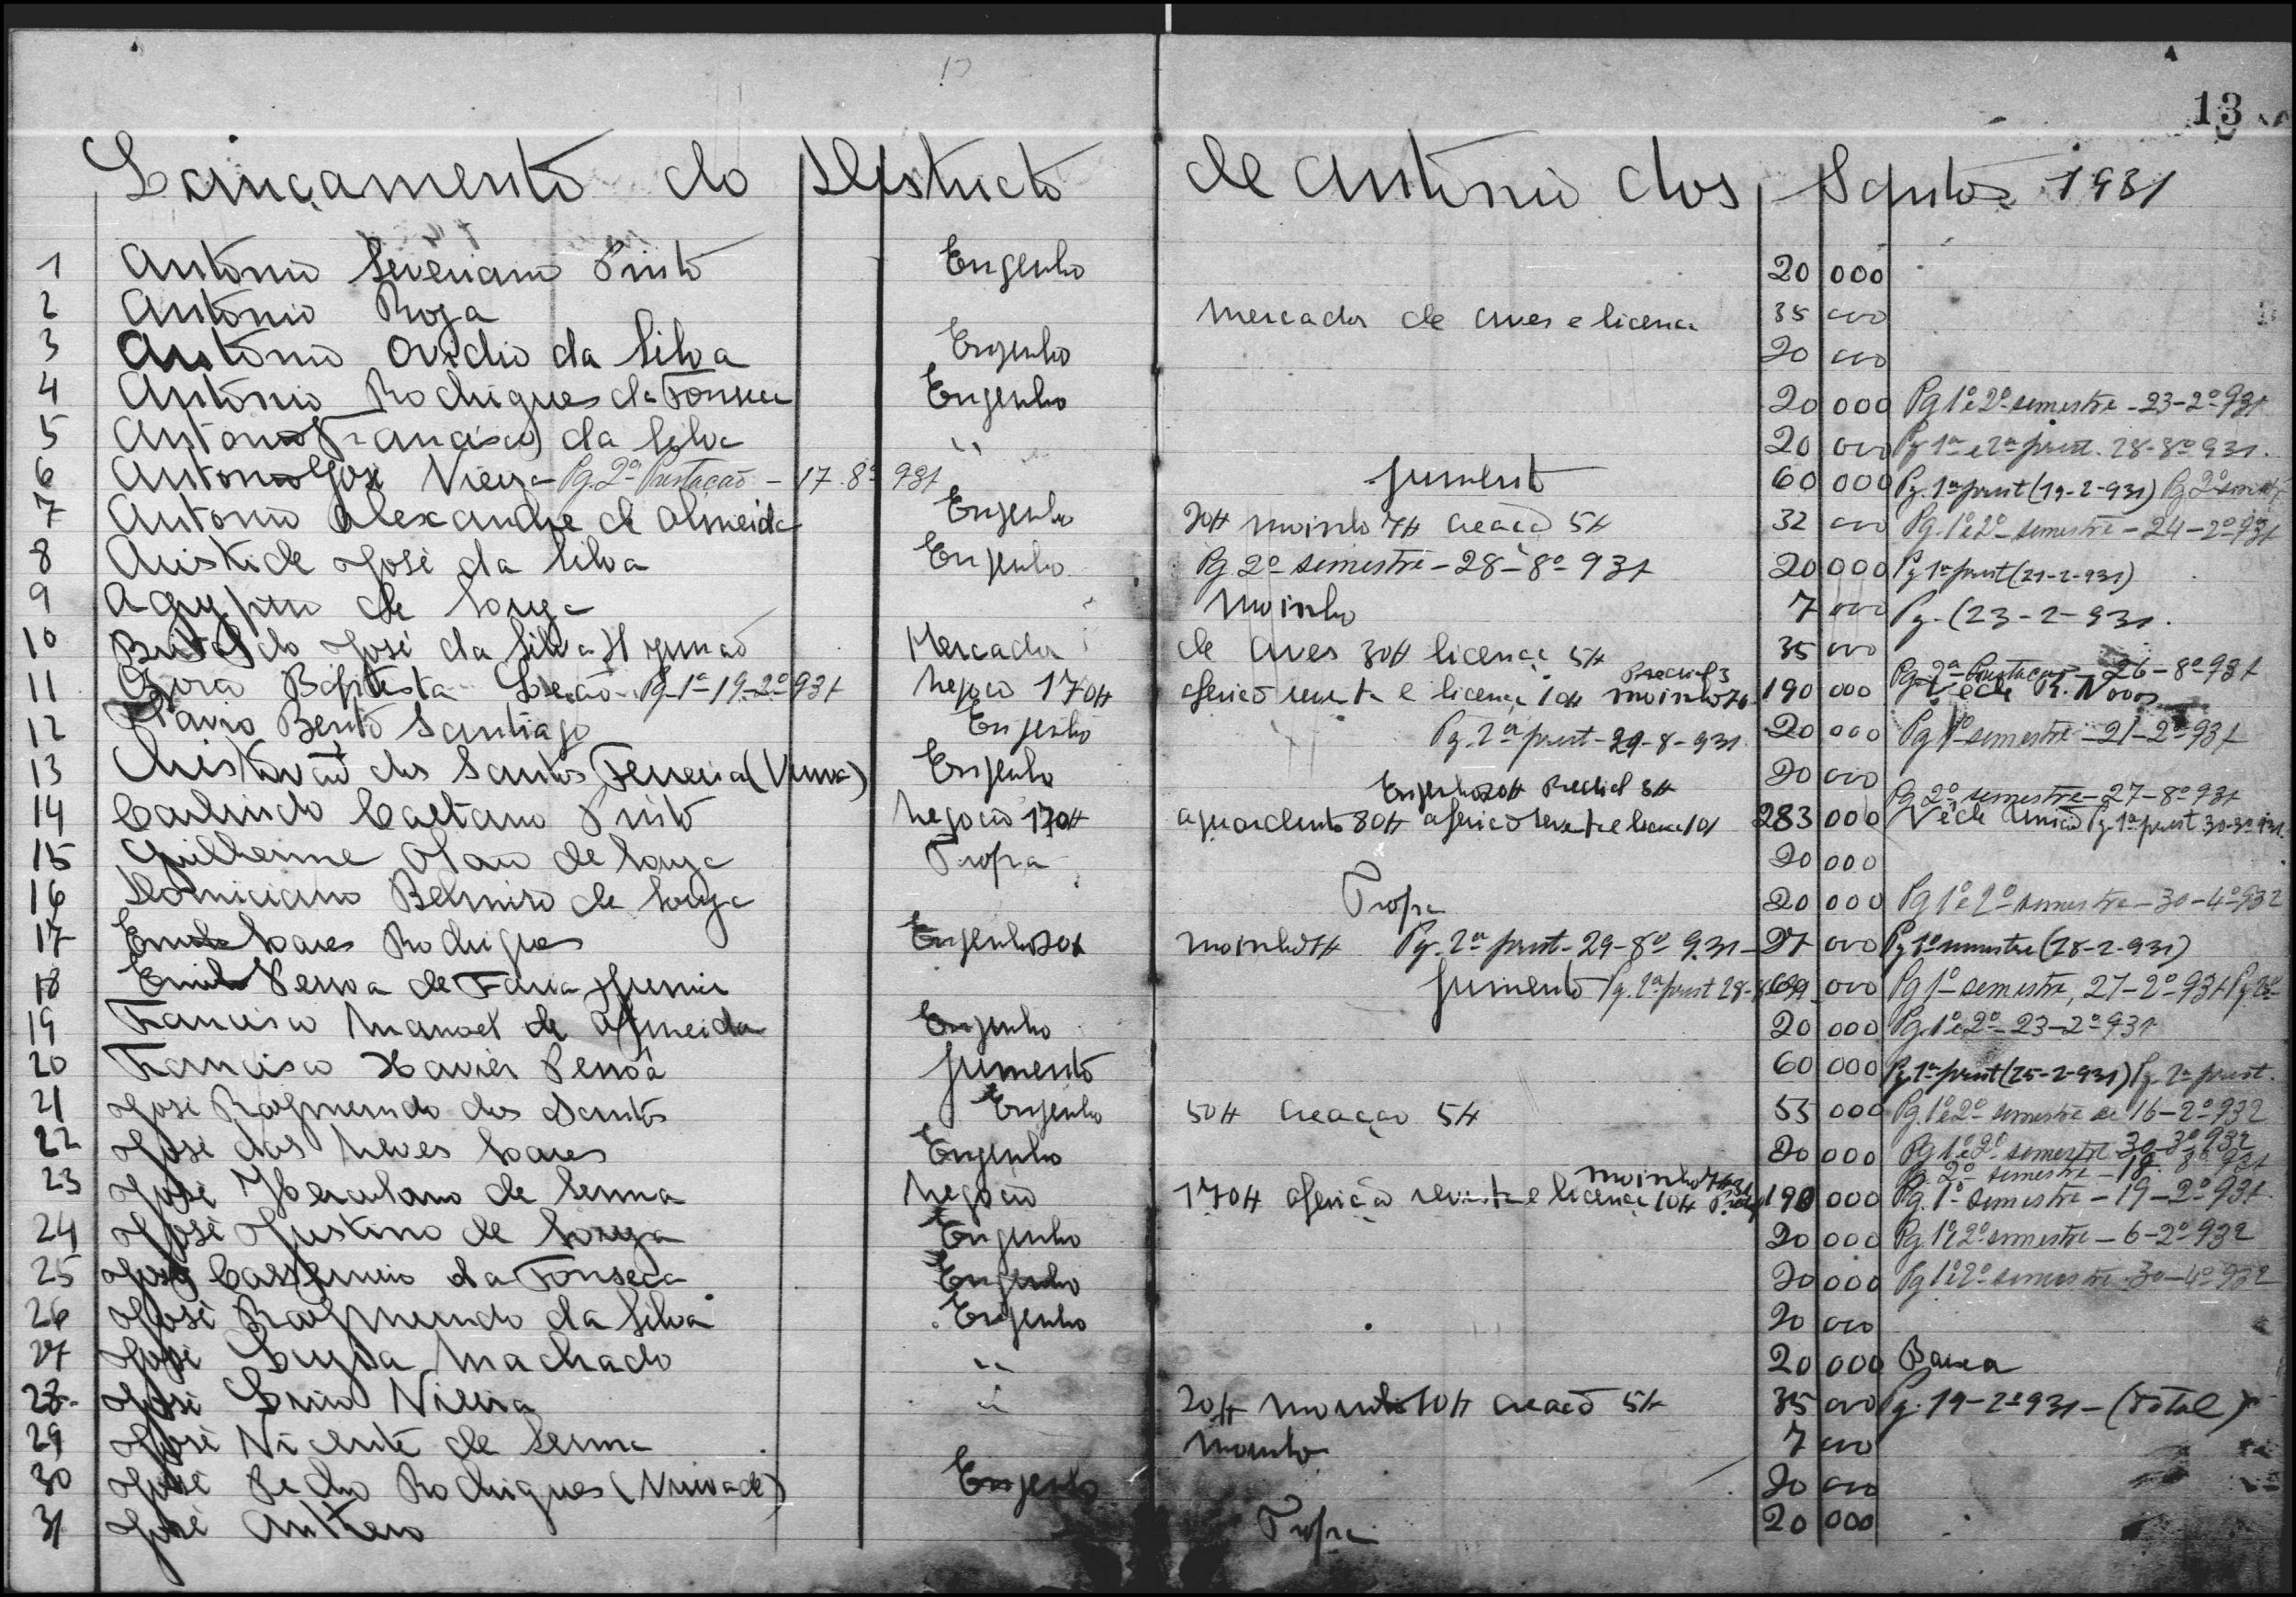 13
Lançamento do Districto de Antonio dos Santos 1931
1 Antonio Severiano Pinto Engenho 20 000
2 Antonio Roza Mercador de aves e licença 35 000
3 Antonio Ovidio da Silva Engenho 20 000
4 Antonio Rodrigues da Fonseca Engenho 20 000 Pg 1º e 2º semestre - 23-2º-931
5 Antonio Francisco da Silva " 20 000 Pg 1ª e 2ª prest. 28-8º 931.
6 Antonio José Vieira Pg. 2ª Prestação - 17-8º 931 Jumento 60 000 Pg. 1ª prest (19-2-931) Pg 2º
7 Antonio Alexandre de Almeida Engenho 20$ moinho 7$ creação 5$ 32 000 Pg. 1º e 2º semestre - 24-2º-931
8 Aristide José da Silva Engenho Pg 2º semestre - 28-8º-931 20 000 Pg 1ª prest (21-2-931)
9 Agrypino de Souza Moinho 7 000 Pg. (23-2-931.
10 José da Silva Mercador de aves 30$ licença 5$ 35 000
11 Baptista Leão Pg 1ª 19-2º 931 Negocio 170$ aferição revista e licença 10$ Predial 3 moinho 7$ 190 000 Pg. 2ª Prestação - 26-8º-931 Véde R. Novos
12 Flavio Bento Santiago Engenho Pg. 2ª prest - 29-8-931 20 000 Pg 1º semestre - 21-2º-931
13 Christovão dos Santos Ferreira (Viuva) Engenho 20 000
14 Carlindo Caetano Pinto Negocio 170$ aguardente 80$ aferição revista e licença 10$ Engenho 20$ Predial 3$ 283 000 Pg 2º semestre - 27-8º 931 Véde União Pg 1ª prest 30-3º 931
15 Guilherme Olavo de Souza Tropa 20 000
16 Domiciano Belmiro de Souza Tropa 20 000 Pg 1º e 2º semestre - 30-4º-932
17 Soares Rodrigues Engenho 20$ moinho 7$ Pg. 2ª prest - 29-8º 931 27 000 Pg 1º semestre (28-2-931)
18 Pessoa de Faria Junior Jumento Pg. 2ª prest 28- 000 Pg 1º semestre, 27-2º-931
19 Francisco Manoel de Almeida Engenho 20 000 Pg. 1º e 2º - 23-2º-931
20 Francisco Xavier Pessoa Jumento 60 000 Pg 1ª prest (25-2-931) Pg 2ª prest.
21 José Raymundo dos Santos Engenho 50$ creaçao 5$ 55 000 Pg 1º e 2º semestre de 16-2º-932
22 José das Neves Soares Engenho 20 000 Pg 1º e 2º semestre 30-3º 932
23 José Herculano de Senna Negocio 170$ aferição revista e licença 10$ moinho 7$ 190 000 Pg 2º semestre - 18-8º 931 Pg. 1º semestre - 19-2º-931
24 José Justino de Souza Engenho 20 000 Pg 1º e 2º semestre - 6-2º 932
25 José Cassemiro da Fonseca Engenho 20 000 Pg 1º e 2º semestre 30-4º-932
26 José Raymundo da Silva Engenho 20 000
27 José Machado " 20 000 Baixa
28 José Vieira " 20$ moinho 10$ creação 5$ 35 000 Pg. 19-2º 931 - (total)
29 José Vicente de Senna Moinho 7 000
30 José Pedro Rodrigues (Viuva de) Engenho 20 000
31 José Anthero Tropa 20 000